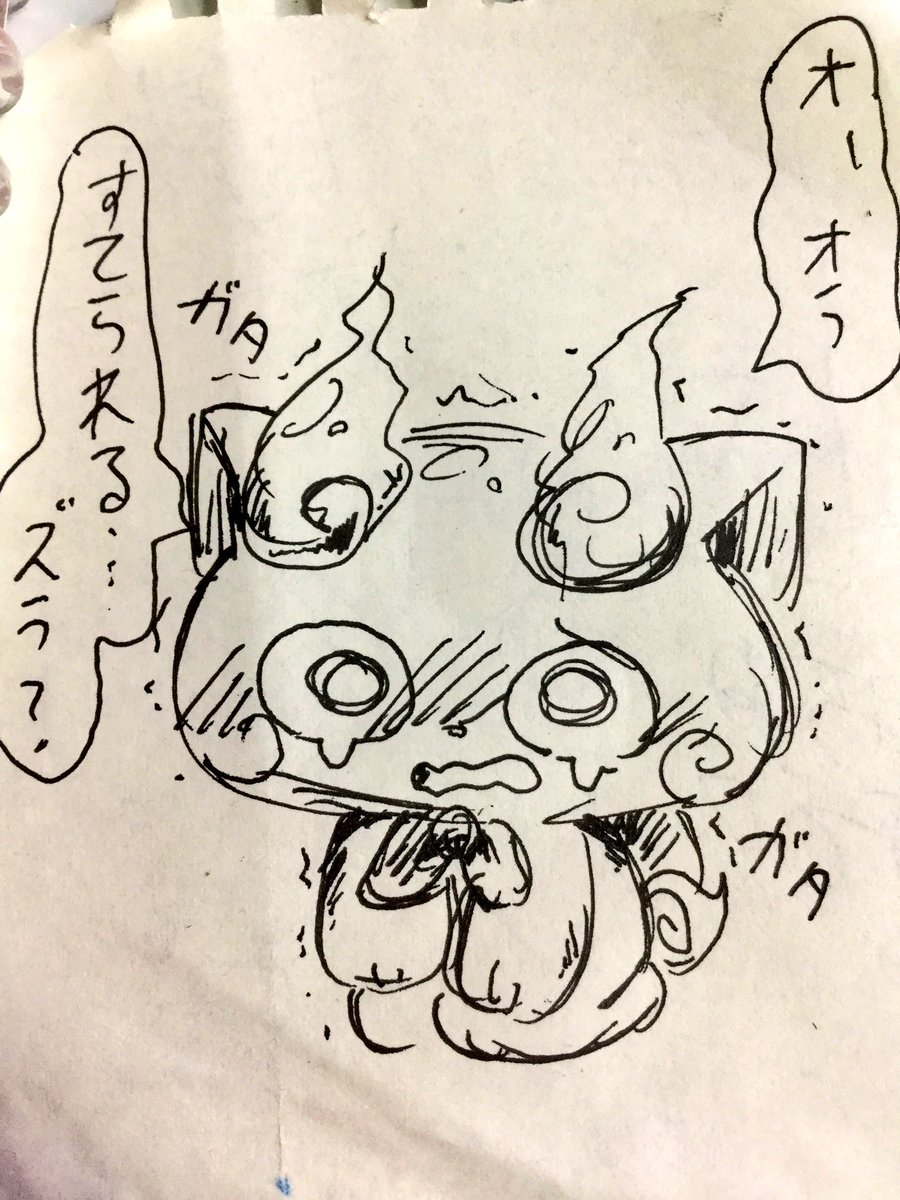 オー
オラ
すてられる…
ズラ?
ガタ
ガタ